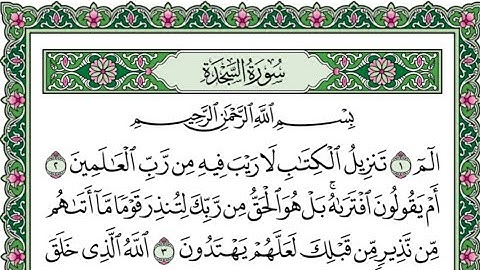 سُورَةُ السَّجْدَةِ
بِسْمِ ٱللَّهِ ٱلرَّحْمَٰنِ ٱلرَّحِيمِ
الٓمٓ ١ تَنزِيلُ ٱلْكِتَٰبِ لَا رَيْبَ فِيهِ مِن رَّبِّ ٱلْعَٰلَمِينَ ٢
أَمْ يَقُولُونَ ٱفْتَرَىٰهُ ۚ بَلْ هُوَ ٱلْحَقُّ مِن رَّبِّكَ لِتُنذِرَ قَوْمًا مَّآ أَتَىٰهُم
مِّن نَّذِيرٍ مِّن قَبْلِكَ لَعَلَّهُمْ يَهْتَدُونَ ٣ ٱللَّهُ ٱلَّذِى خَلَقَ